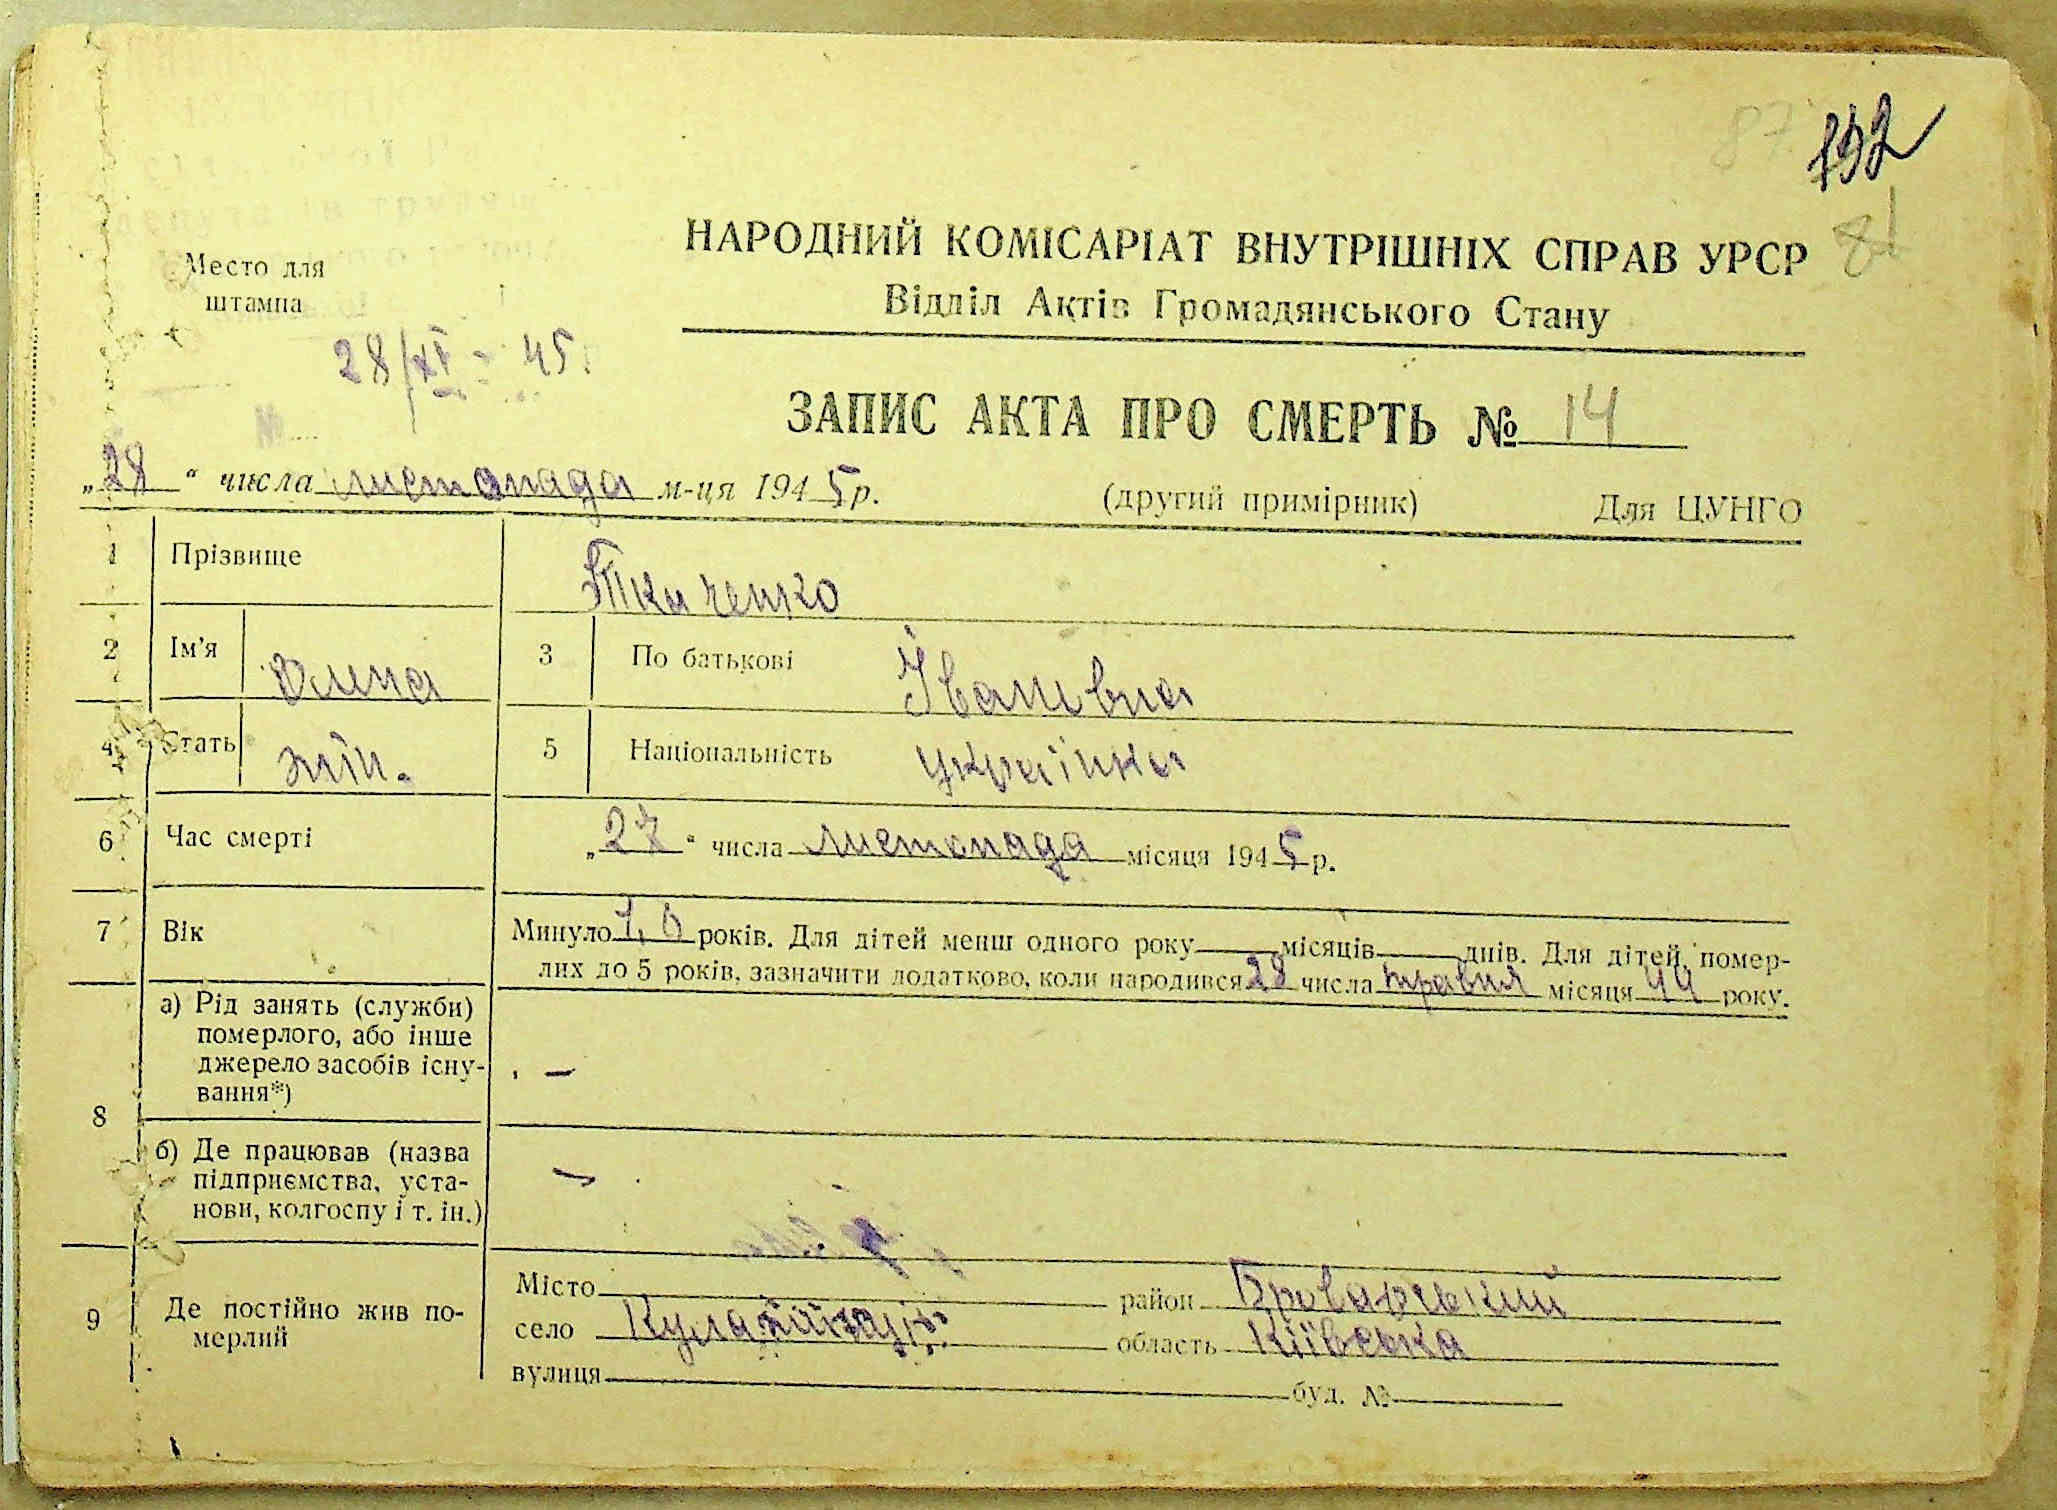 87 132
81
НАРОДНИЙ КОМІСАРІАТ ВНУТРІШНІХ СПРАВ УРСР
Відділ Актів Громадянського Стану
Место для
штампа
28/XI - 45.
№
ЗАПИС АКТА ПРО СМЕРТЬ № 14
„28“ числа листопада м-ця 1945 р. (другий примірник) Для ЦУНГО
1 Прізвище Ткаченко
2 Ім'я Олена 3 По батькові Іванівна
4 Стать жін. 5 Національність українка
6 Час смерті „27“ числа листопада місяця 1945 р.
7 Вік Минуло 1,6 років. Для дітей менш одного року місяців днів. Для дітей, помер-
лих до 5 років, зазначити додатково, коли народився 28 числа травня місяця 44 року.
8 а) Рід занять (служби)
померлого, або інше
джерело засобів існу-
вання*) —
б) Де працював (назва
підприємства, уста-
нови, колгоспу і т. ін.) —
9 Де постійно жив по-
мерлий
Місто район Броварський
село область Київська
вулиця буд. №